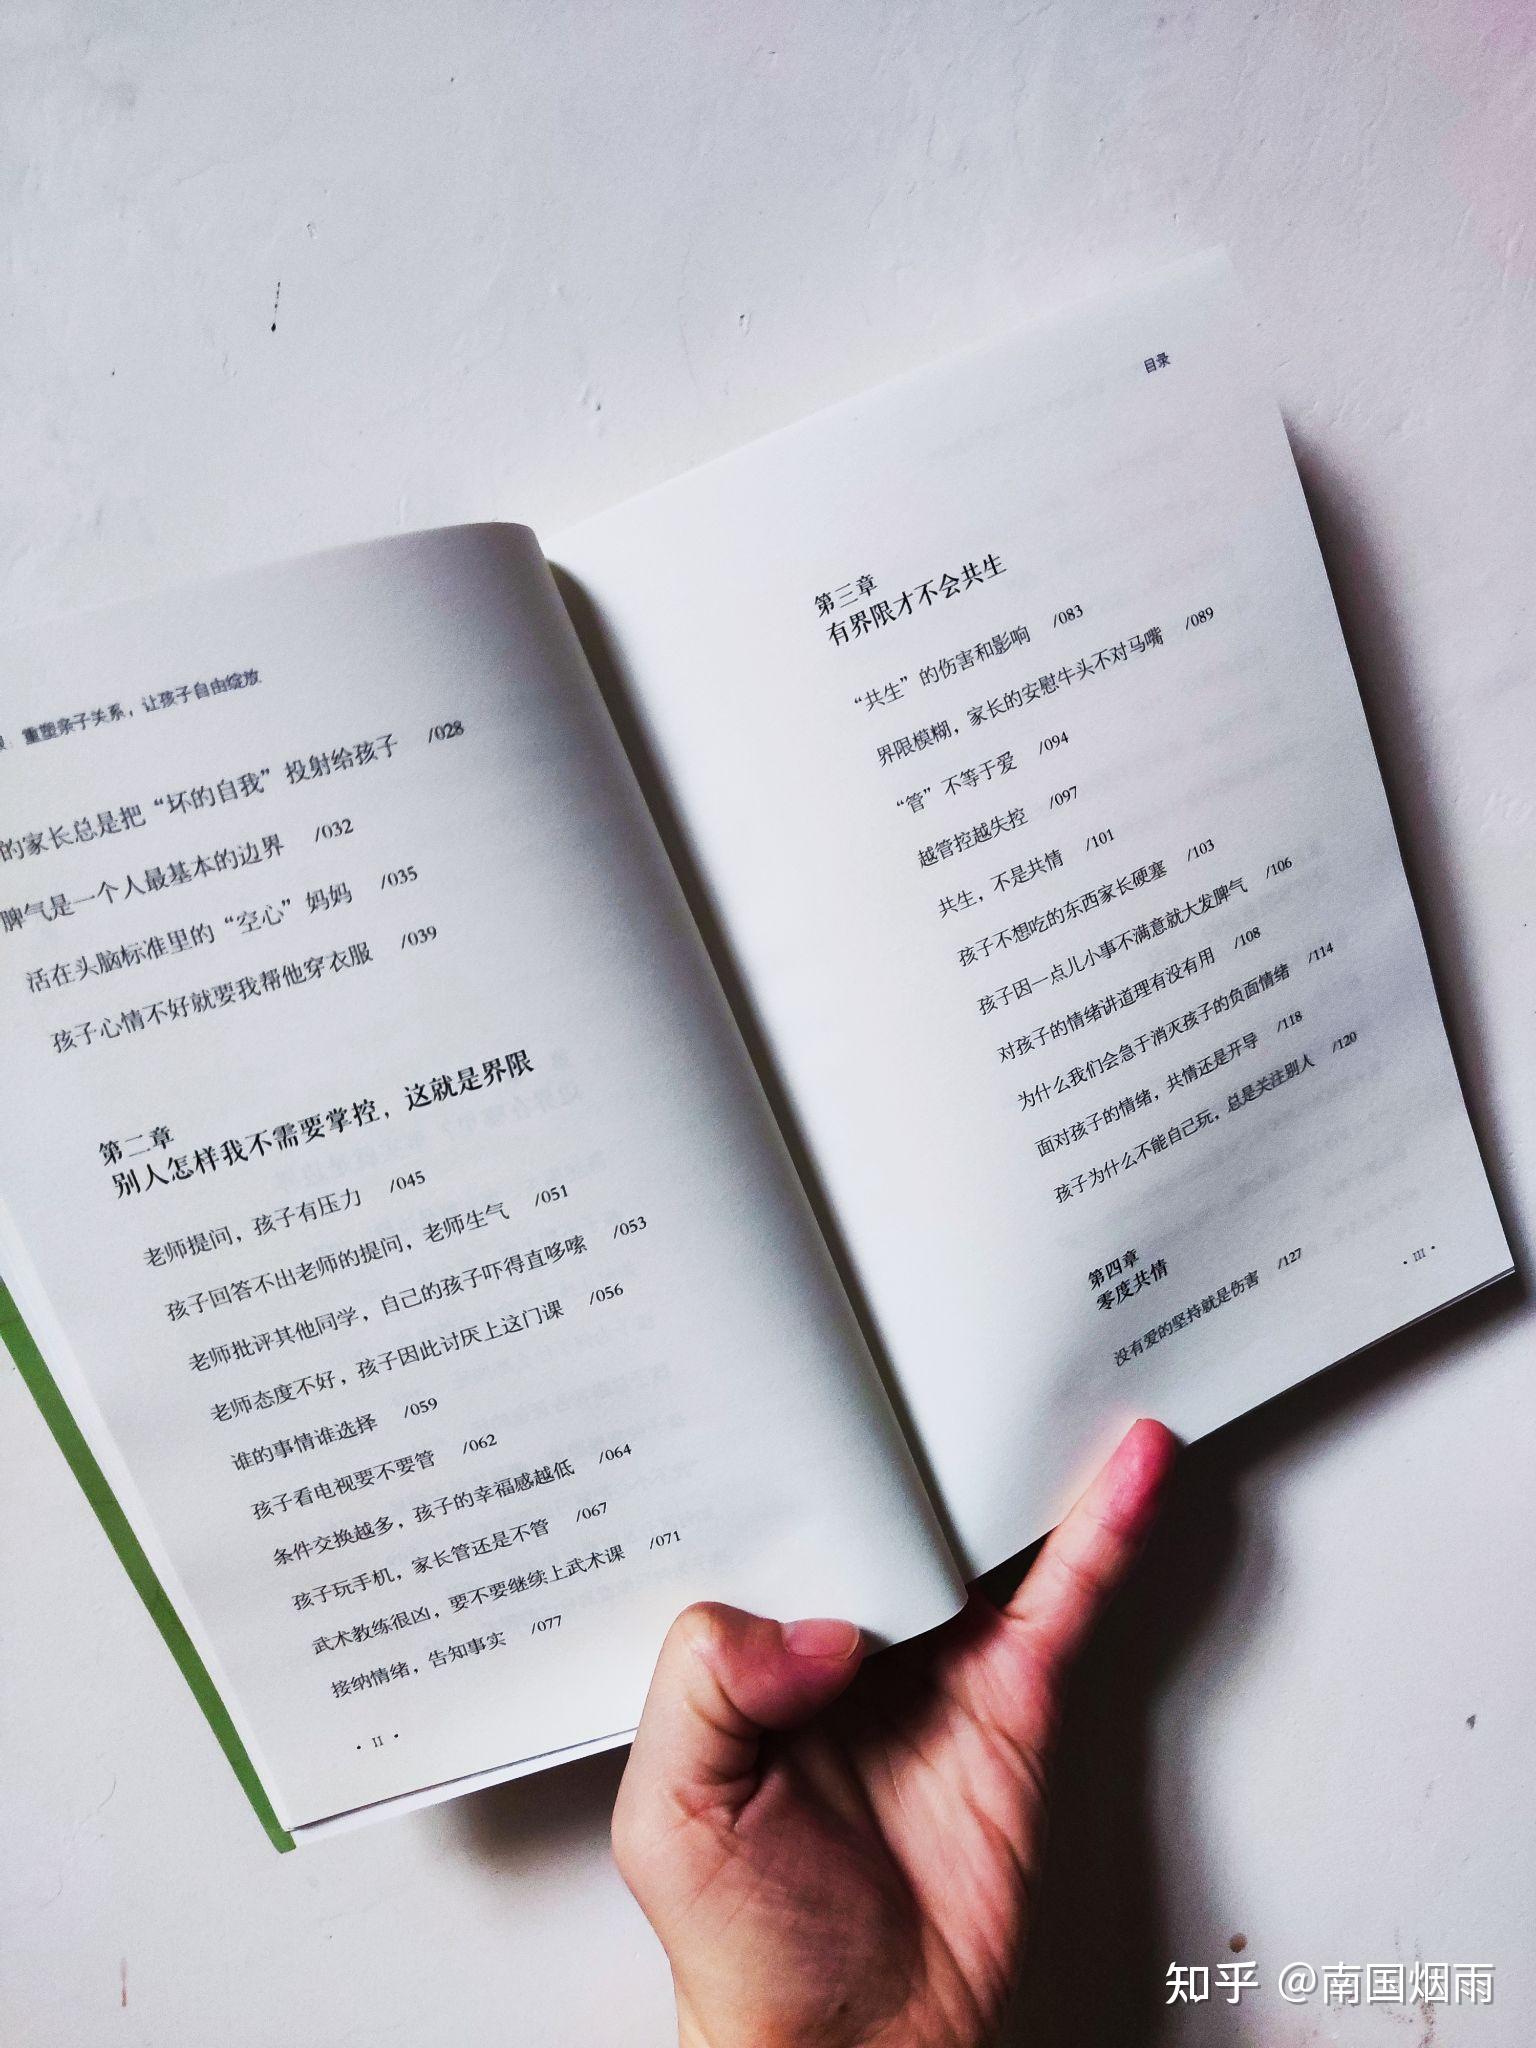 重塑亲子关系，让孩子自由绽放
的家长总是把“坏的自我”投射给孩子 /028
脾气是一个人最基本的边界 /032
活在头脑标准里的“空心”妈妈 /035
孩子心情不好就要我帮他穿衣服 /039
第二章
别人怎样我不需要掌控，这就是界限
老师提问，孩子有压力 /045
孩子回答不出老师的提问，老师生气 /051
老师批评其他同学，自己的孩子吓得直哆嗦 /053
老师态度不好，孩子因此讨厌上这门课 /056
谁的事情谁选择 /059
孩子看电视要不要管 /062
条件交换越多，孩子的幸福感越低 /064
孩子玩手机，家长管还是不管 /067
武术教练很凶，要不要继续上武术课 /071
接纳情绪，告知事实 /077
• II •
目录
第三章
有界限才不会共生
“共生”的伤害和影响 /083
界限模糊，家长的安慰牛头不对马嘴 /089
“管”不等于爱 /094
越管控越失控 /097
共生，不是共情 /101
孩子不想吃的东西家长硬塞 /103
孩子因一点儿小事不满意就大发脾气 /106
对孩子的情绪讲道理有没有用 /108
为什么我们会急于消灭孩子的负面情绪 /114
面对孩子的情绪，共情还是开导 /118
孩子为什么不能自己玩，总是关注别人 /120
第四章
零度共情
没有爱的坚持就是伤害 /127
• III •
知乎 @南国烟雨